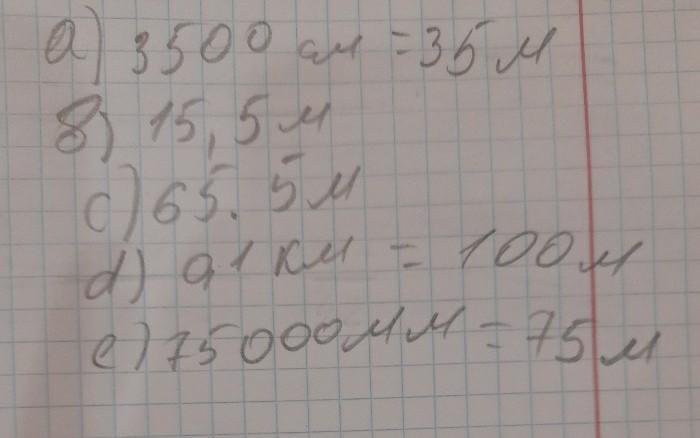 а) 3500 см = 35 м
в) 15,5 м
c) 65.5 м
d) 0,1 км = 100 м
e) 75000 мм = 75 м